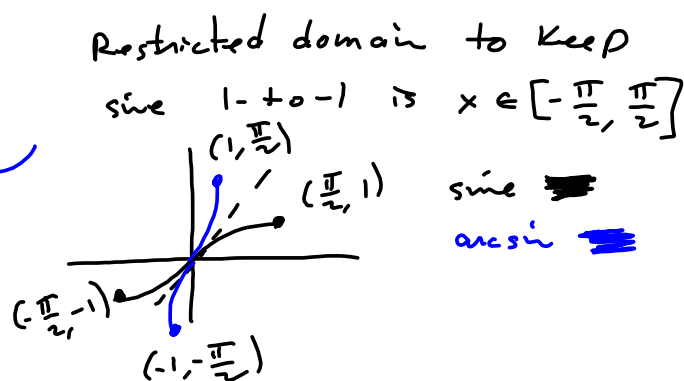 Restricted domain to keep
sine 1-to-1 is x ∈ [-π/2, π/2]
(1, π/2)
(π/2, 1)
sine
arcsin
(-π/2, -1)
(-1, -π/2)